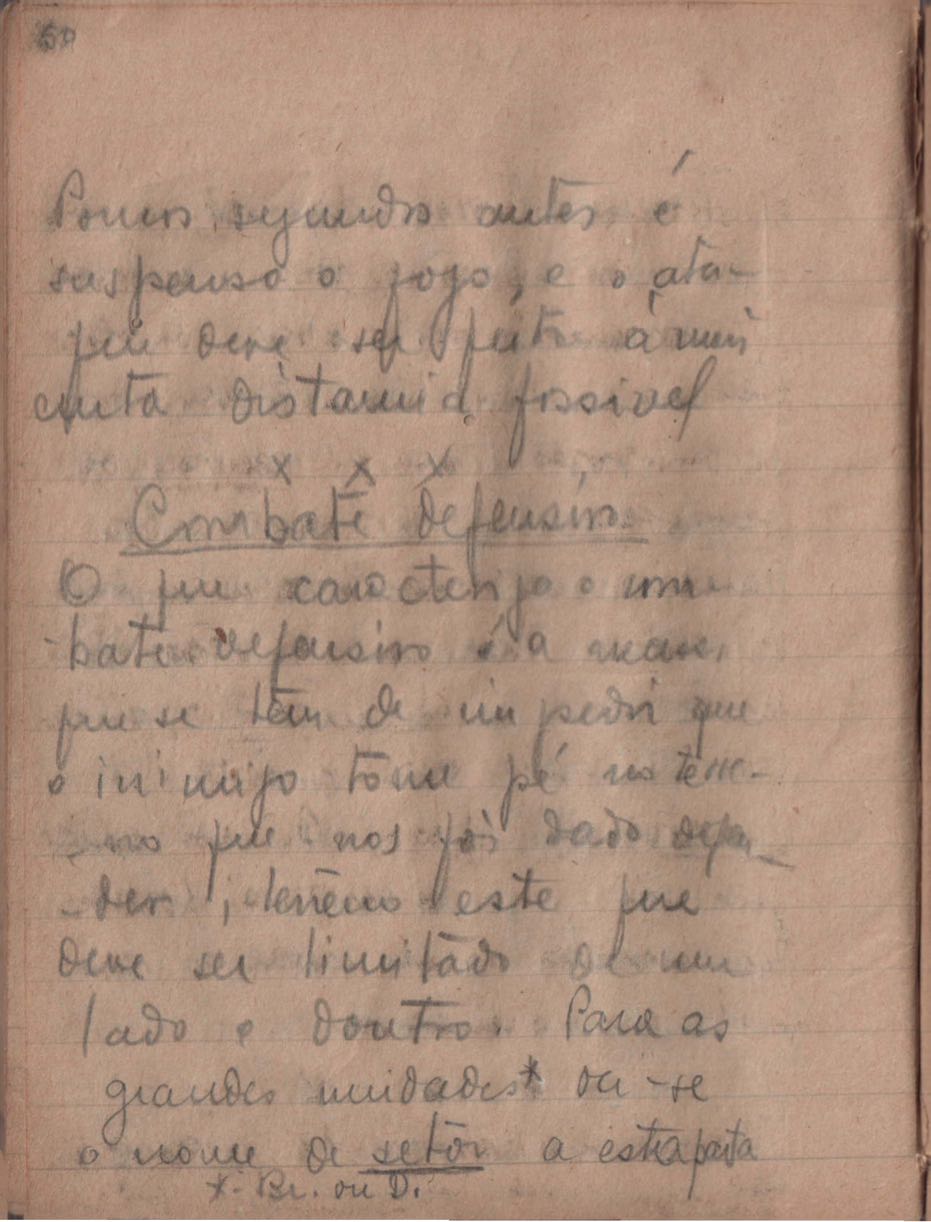 50
Poucos segundos antes é
suspenso o fogo, e o ata-
que deve ser feito á mais
curta distancia possivel
x x x
Combate defensivo
O que caracteriza o com-
bate defensivo é a
que se tem de impedir que
o inimigo tome pé no terre-
no que nos foi dado defen-
der, terreno este que
deve ser limitado de um
lado e doutro. Para as
grandes unidades* dá-se
o nome de setôr a esta parte
*- Br. ou D.